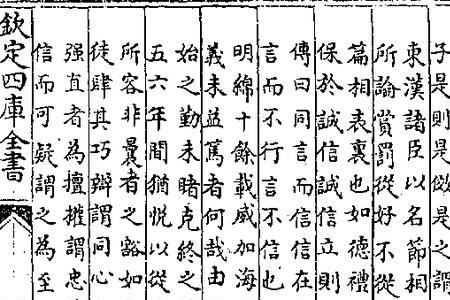 子是則是倣是之謂
東漢諸臣以名節相
所論賞罰從好不從
篇相表裏也如德禮
保於誠信誠信立則
傳曰同言而信信在
言而不行言不信也
明綿十餘載威加海
義未益篤者何哉由
始之勤未睹克終之
五六年間猶悦以從
所容非曩者之豁如
徒肆其巧辯謂同心
强直者為擅權謂忠
信而可疑謂之為至
欽定四庫全書